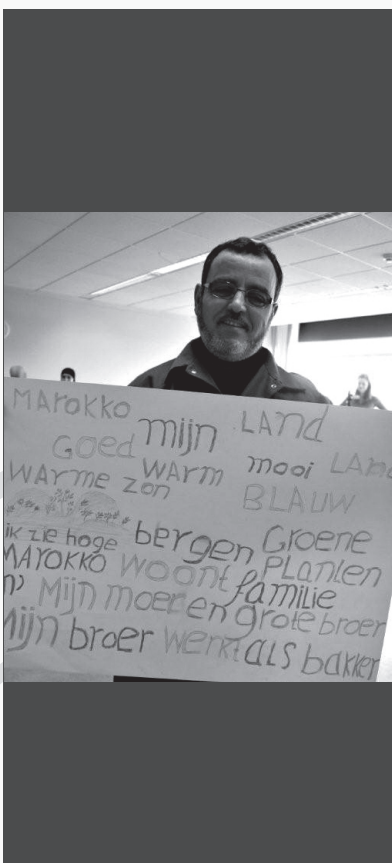 MARokko mijn LAnd
GOed WARM mooi LAnd
WARme zon BLAUW
ik zie hoge bergen Groene
MARokko woont PLAnten
familie
Mijn moeder en grote broer
Mijn broer werkt ALS bakker